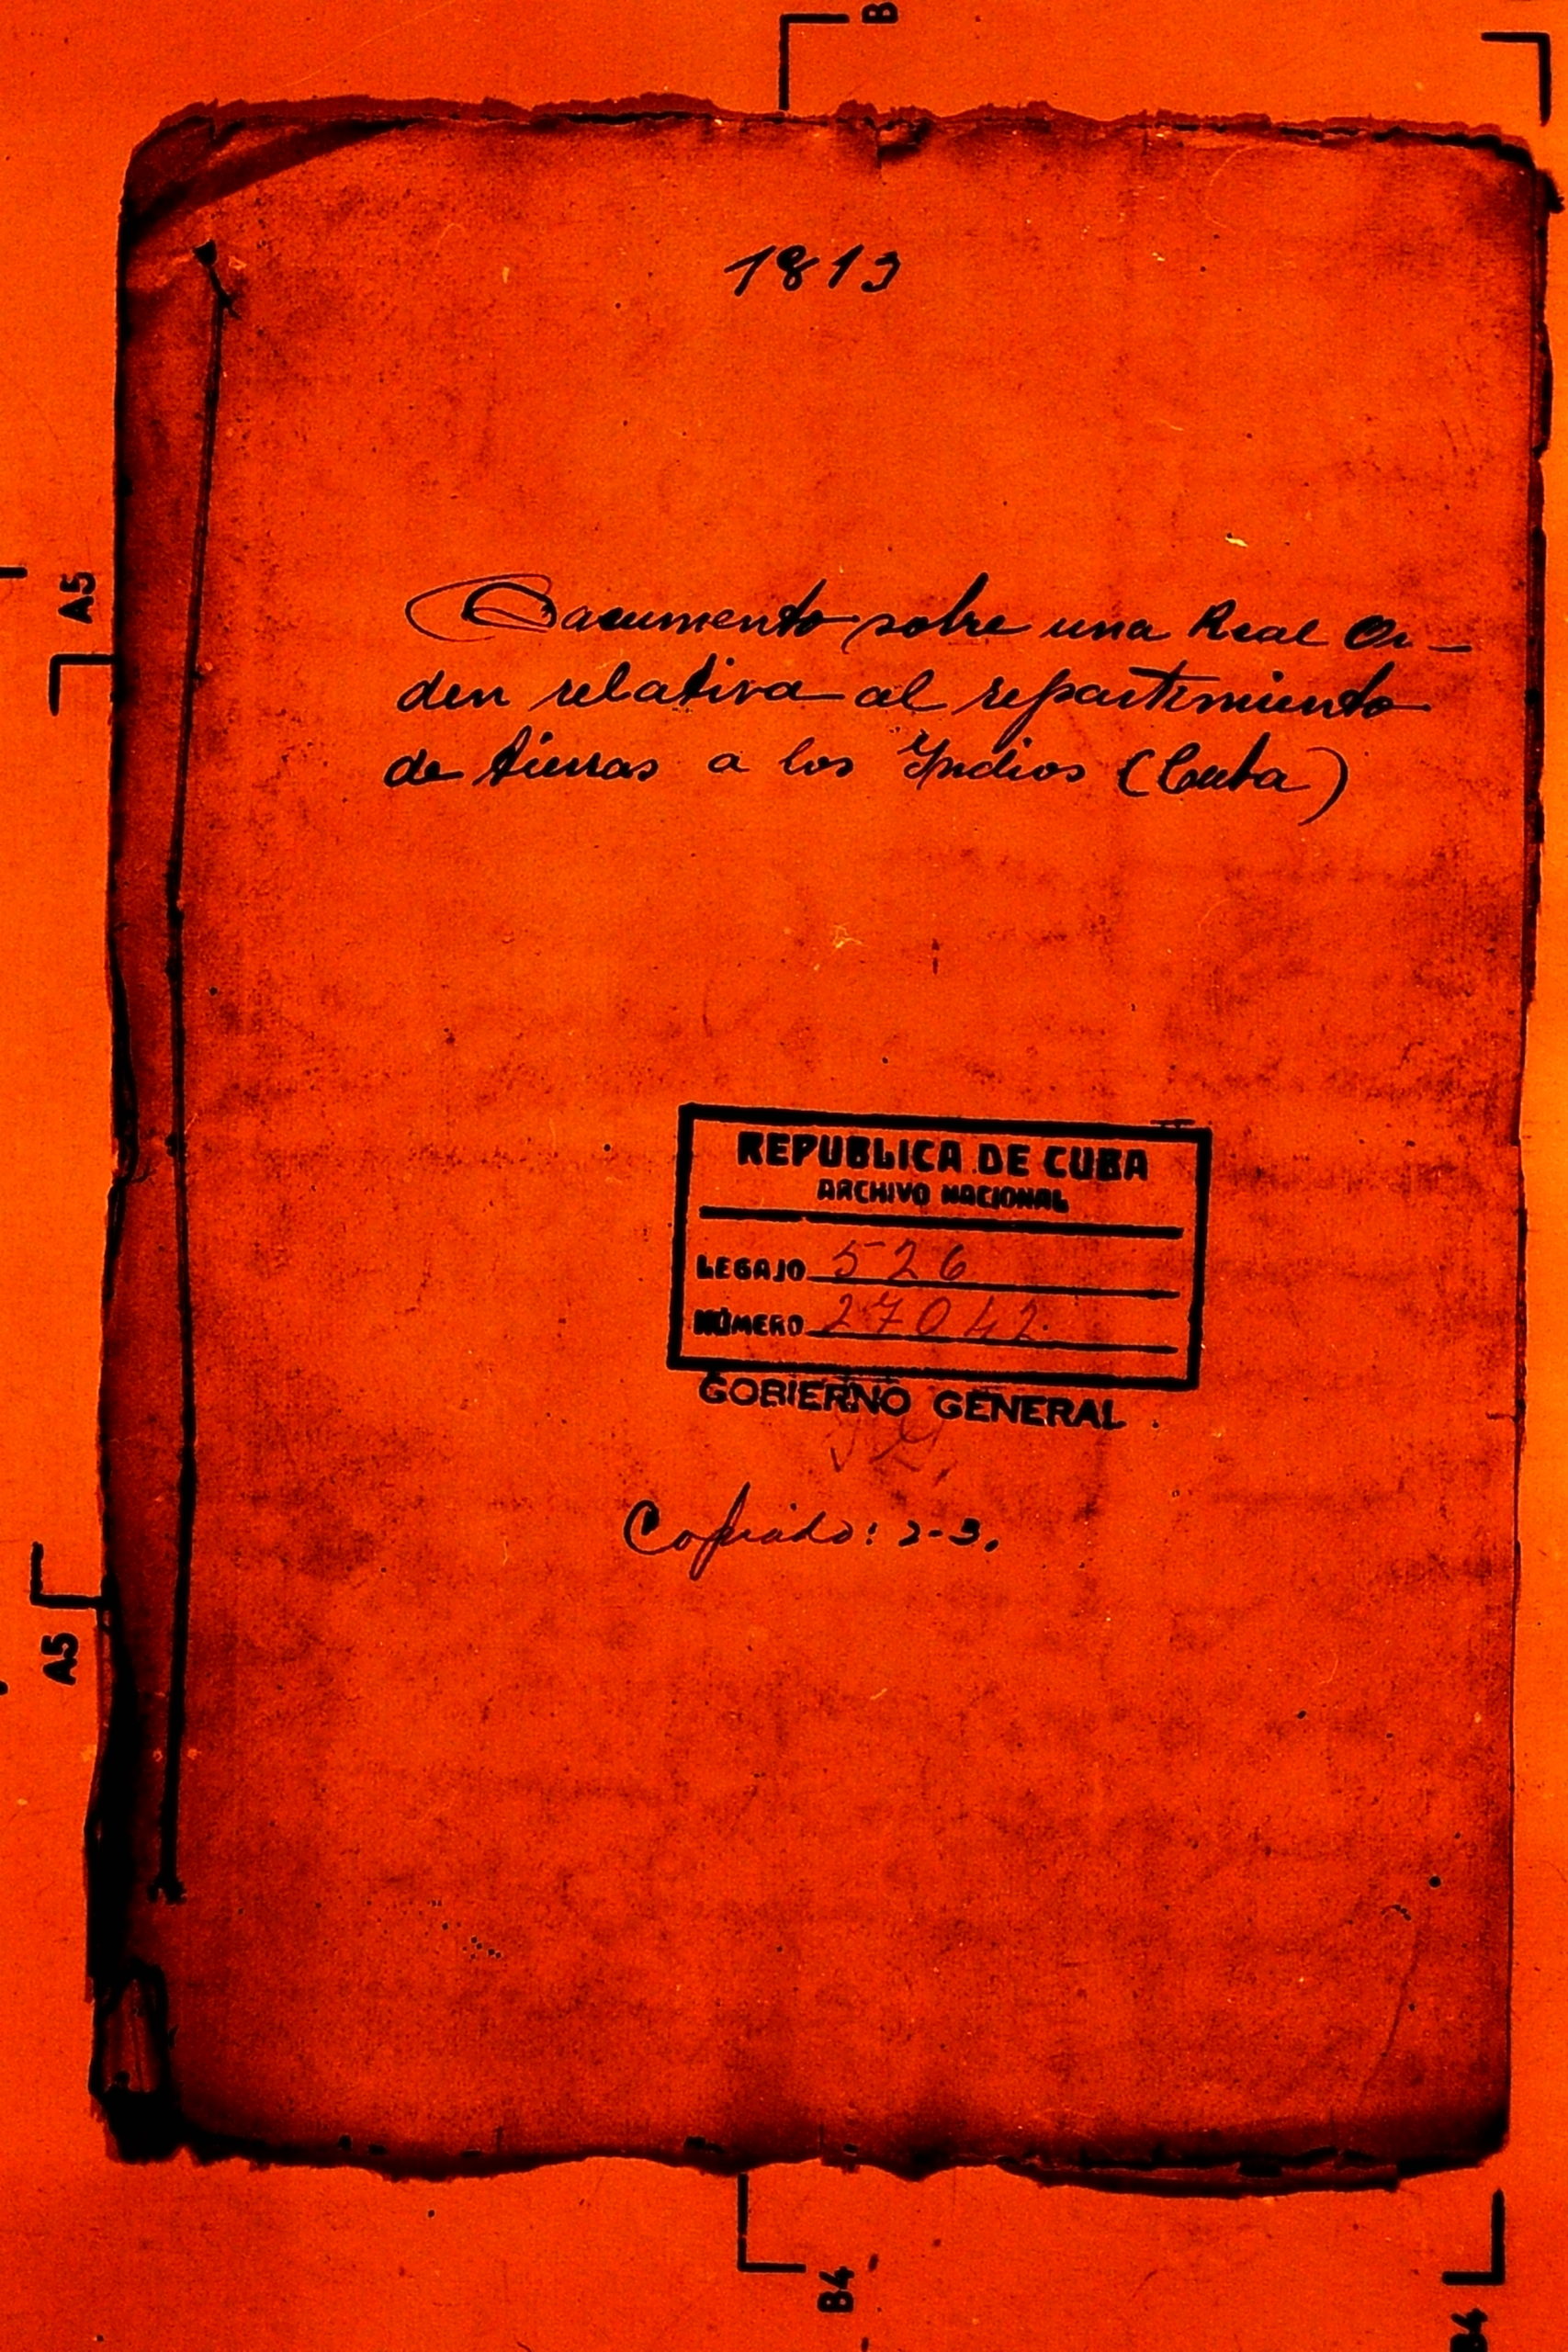 B
1813
A5
Documento sobre una Real Or-
den relativa al repartimiento
de tierras a los Yndios (Cuba)
REPUBLICA DE CUBA
ARCHIVO NACIONAL
LEGAJO 526
NÚMERO 27042
GOBIERNO GENERAL
Copiado: 2-3.
A5
B4
B4